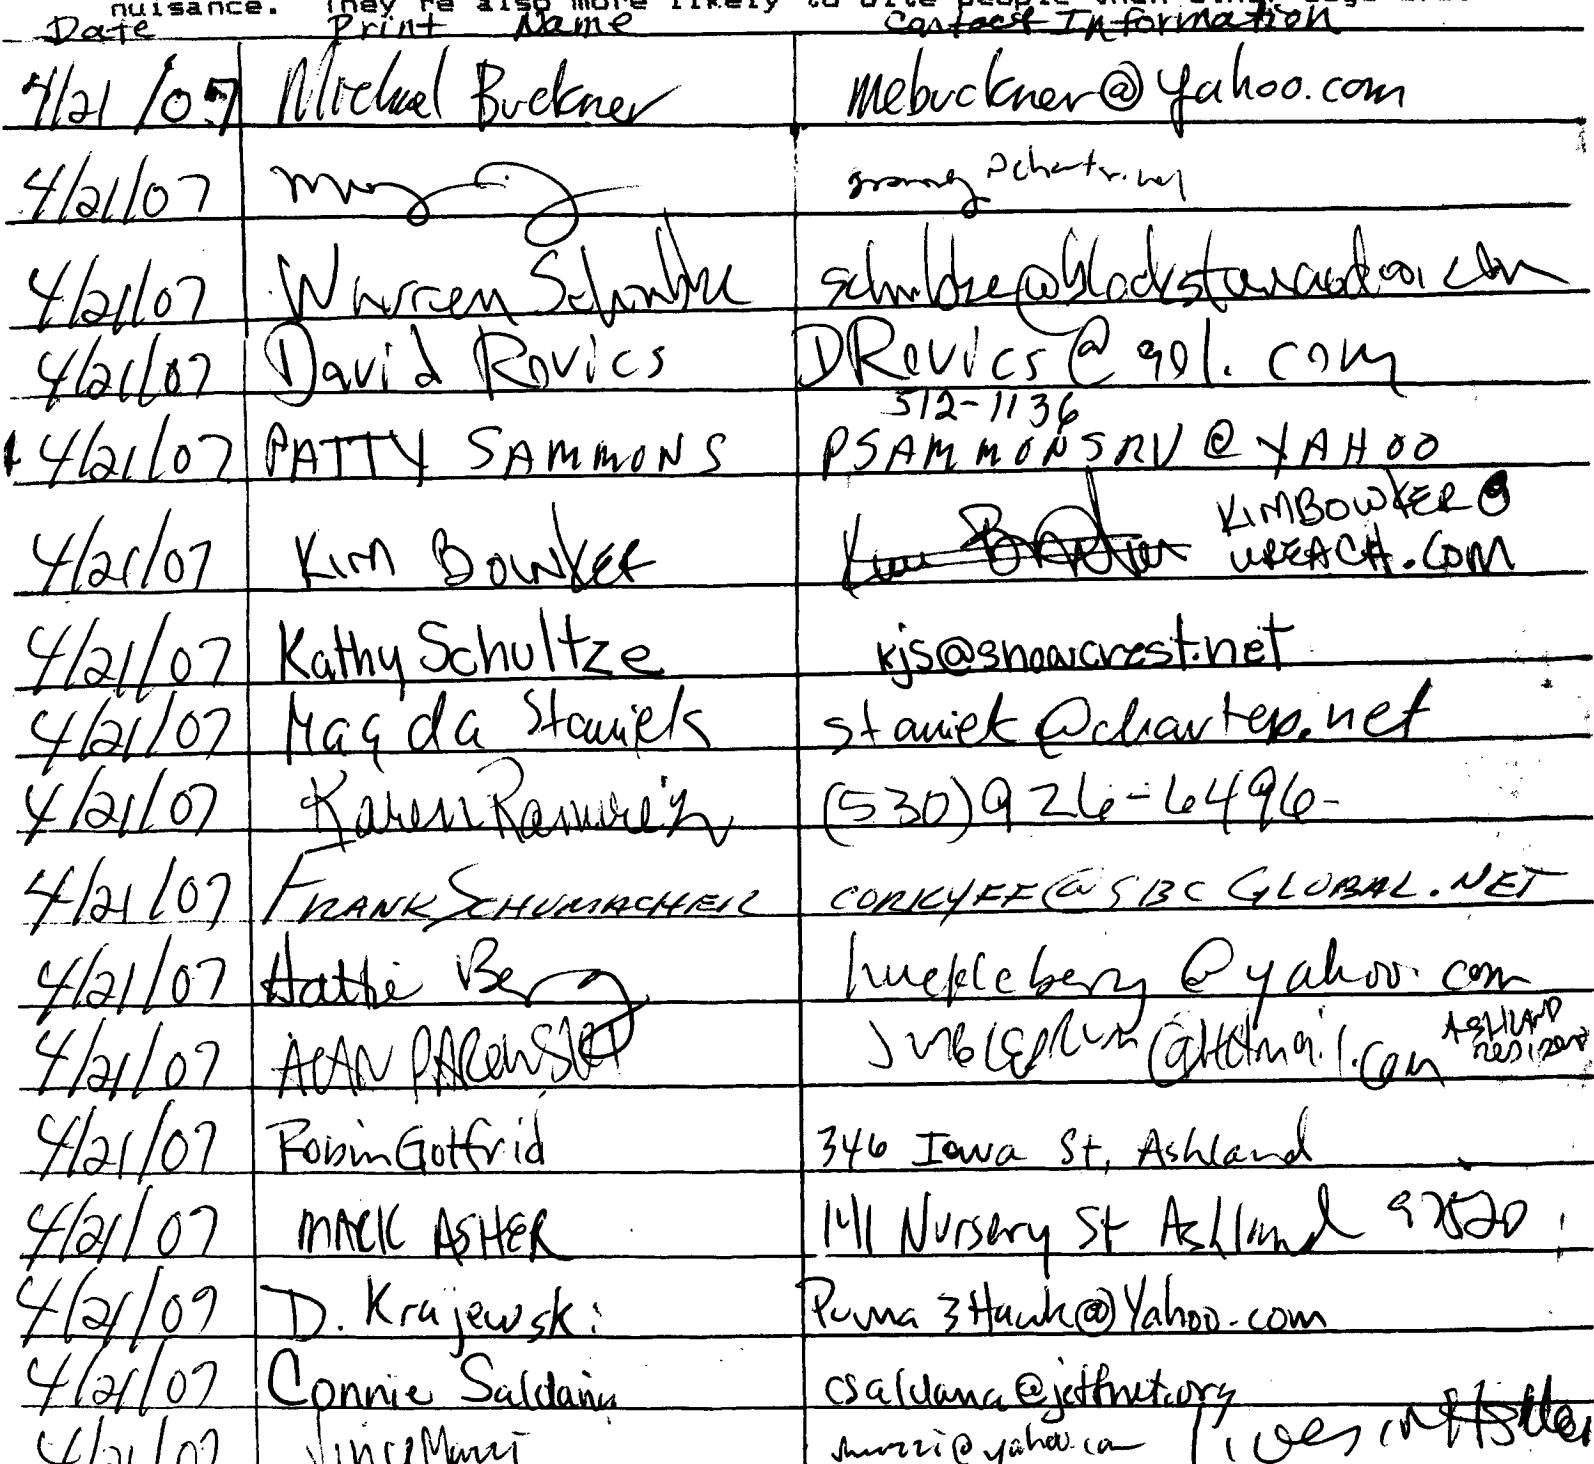 nuisance. They're also more likely to bite people when
Date Print Name Contact Information
4/21/07 Michael Buckner mebuckner@yahoo.com
4/21/07
4/21/07 Warren
4/21/07 David Rovics DRovics@aol.com
512-1136
4/21/07 PATTY SAMMONS PSAMMONSRV@YAHOO
KIMBOWKER@
4/21/07 KIM BOWKER UREACH.COM
4/21/07 Kathy Schultze kjs@snowcrest.net
4/21/07 Magda Staniek staniek@charter.net
4/21/07 Karen Ramirez (530)926-6496
4/21/07 FRANK SCHUMACHER CORKYFF@SBCGLOBAL.NET
4/21/07 Hattie Berg huckleberg@yahoo.com
4/21/07 ALAN @Hotmail.com ASHLAND
resident
4/21/07 Robin Gotfrid 346 Iowa St, Ashland
4/21/07 MARK ASHER 141 Nursery St Ashland 97520
4/21/07 D. Krajewski Puma3Hawk@Yahoo.com
4/21/07 Connie Saldana csaldana@jeffnet.org
4/21/07 @yahoo.com Lives in